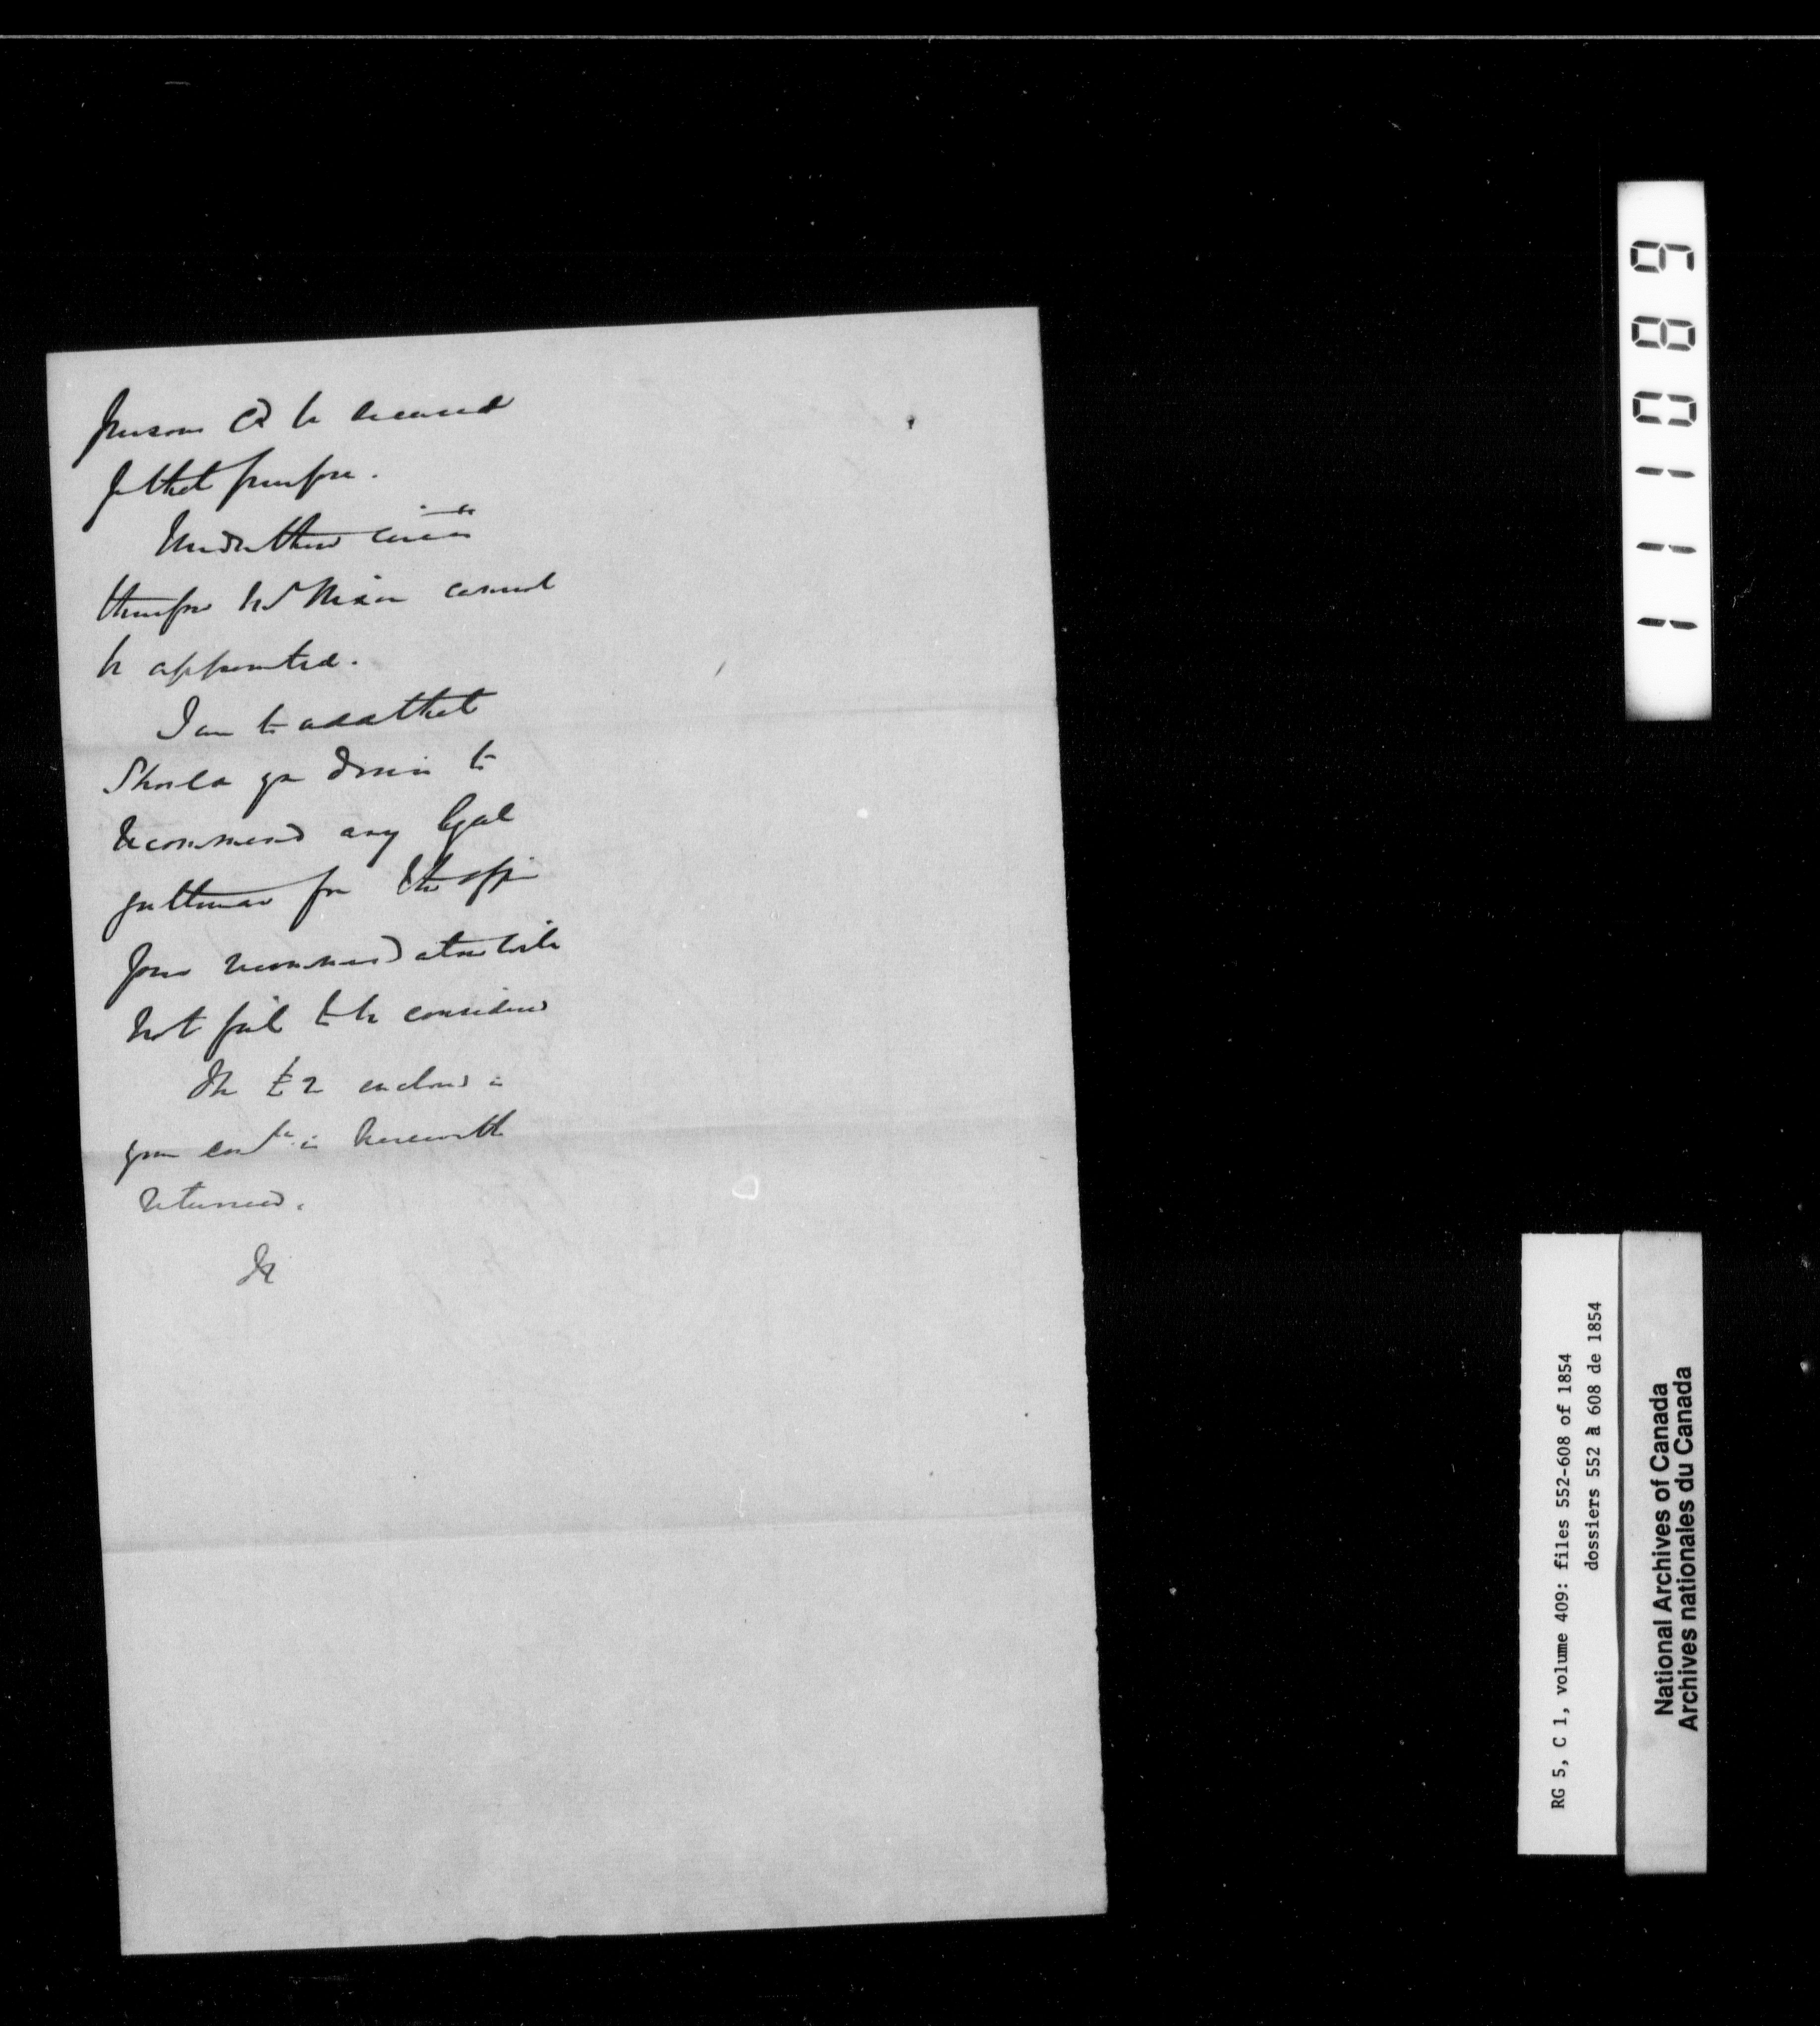 persons cd be secured
for that purpose.
Under these circes
therefore Mr Nixon cannot
be appointed.
I am to add that
Should you desire to
recommend any legal
gentleman for the office
your recommendation will
not fail to be considered
The £2 enclosed in
your is herewith
returned.
111089
RG 5, C 1, volume 409: files 552-608 of 1854
dossiers 552 à 608 de 1854
National Archives of Canada
Archives nationales du Canada